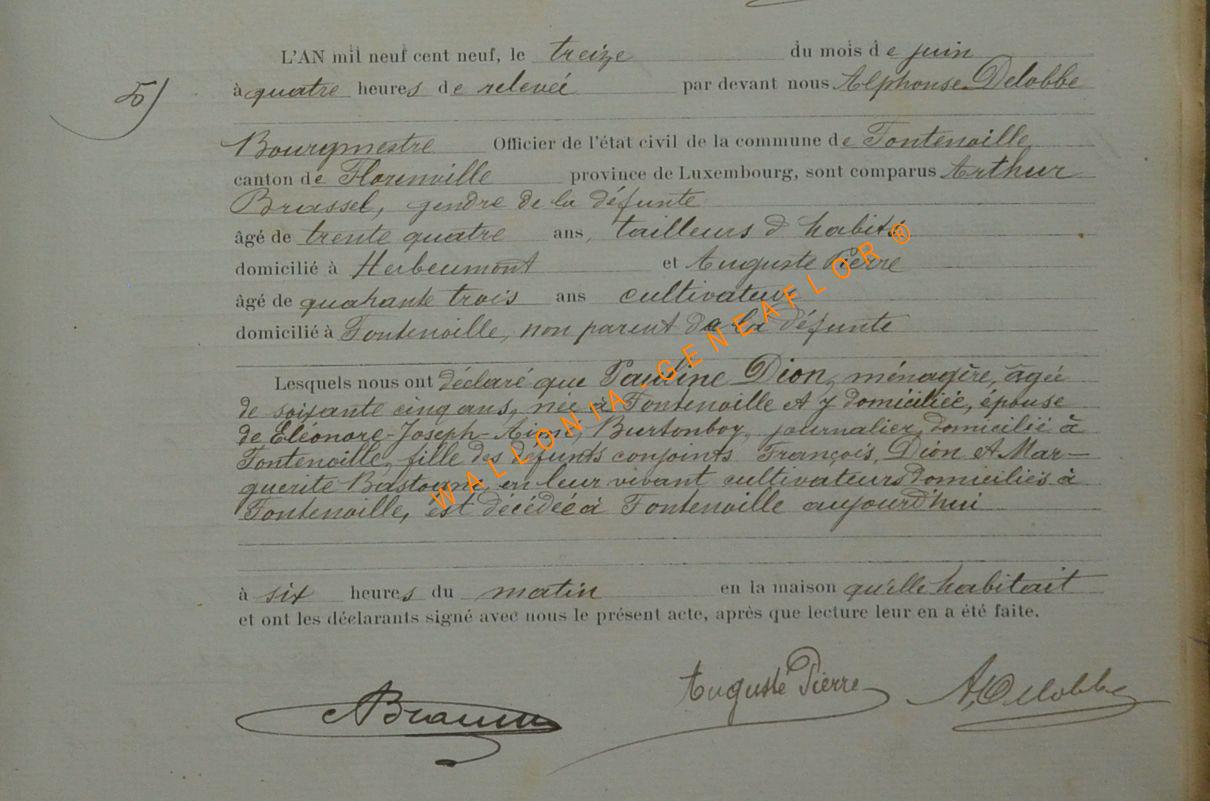 5)
L'AN mil neuf cent neuf, le treize du mois de juin
à quatre heures de relevée par devant nous Alphonse Delobbe
Bourgmestre Officier de l'état civil de la commune de Fontenoille
canton de Florenville province de Luxembourg, sont comparus Arthur
Brassel, gendre de la défunte
âgé de trente quatre ans, tailleurs d'habits
domicilié à Herbeumont et Auguste Pierre
âgé de quarante trois ans cultivateur
domicilié à Fontenoille, non parent de la défunte
Lesquels nous ont déclaré que Pauline Dion, ménagère, âgée
de soixante cinq ans, née à Fontenoille et y domiciliée, épouse
de Eléonore-Joseph- Burtonboy, journalier, domicilié à
Fontenoille, fille des défunts conjoints François Dion et Mar-
guerite Bastogne, en leur vivant cultivateurs domiciliés à
Fontenoille, est décédée à Fontenoille aujourd'hui
à six heures du matin en la maison qu'elle habitait
et ont les déclarants signé avec nous le présent acte, après que lecture leur en a été faite.
Auguste Pierre A, Delobbe
WALLONIA.GENEAFLOR®